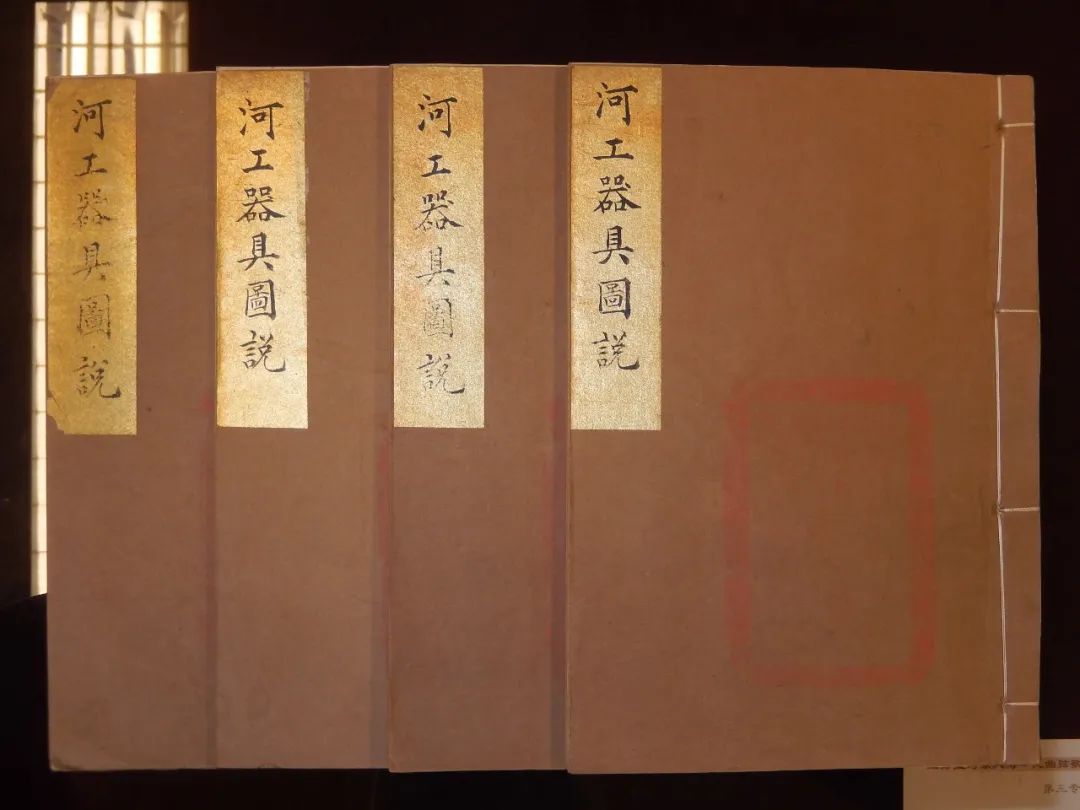 河工器具圖説
河工器具圖説
河工器具圖説
河工器具圖説
第三